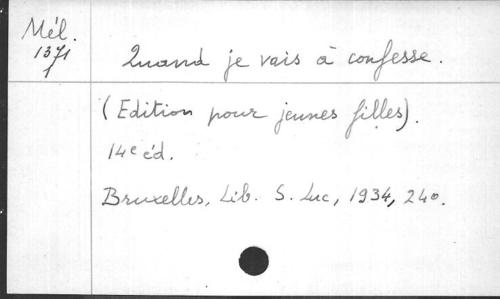 Mél.
1371
1
Quand je vais à confesse.
(Edition pour jeunes filles).
14e éd.
Bruxelles, Lib. S. Luc, 1934, 24o.